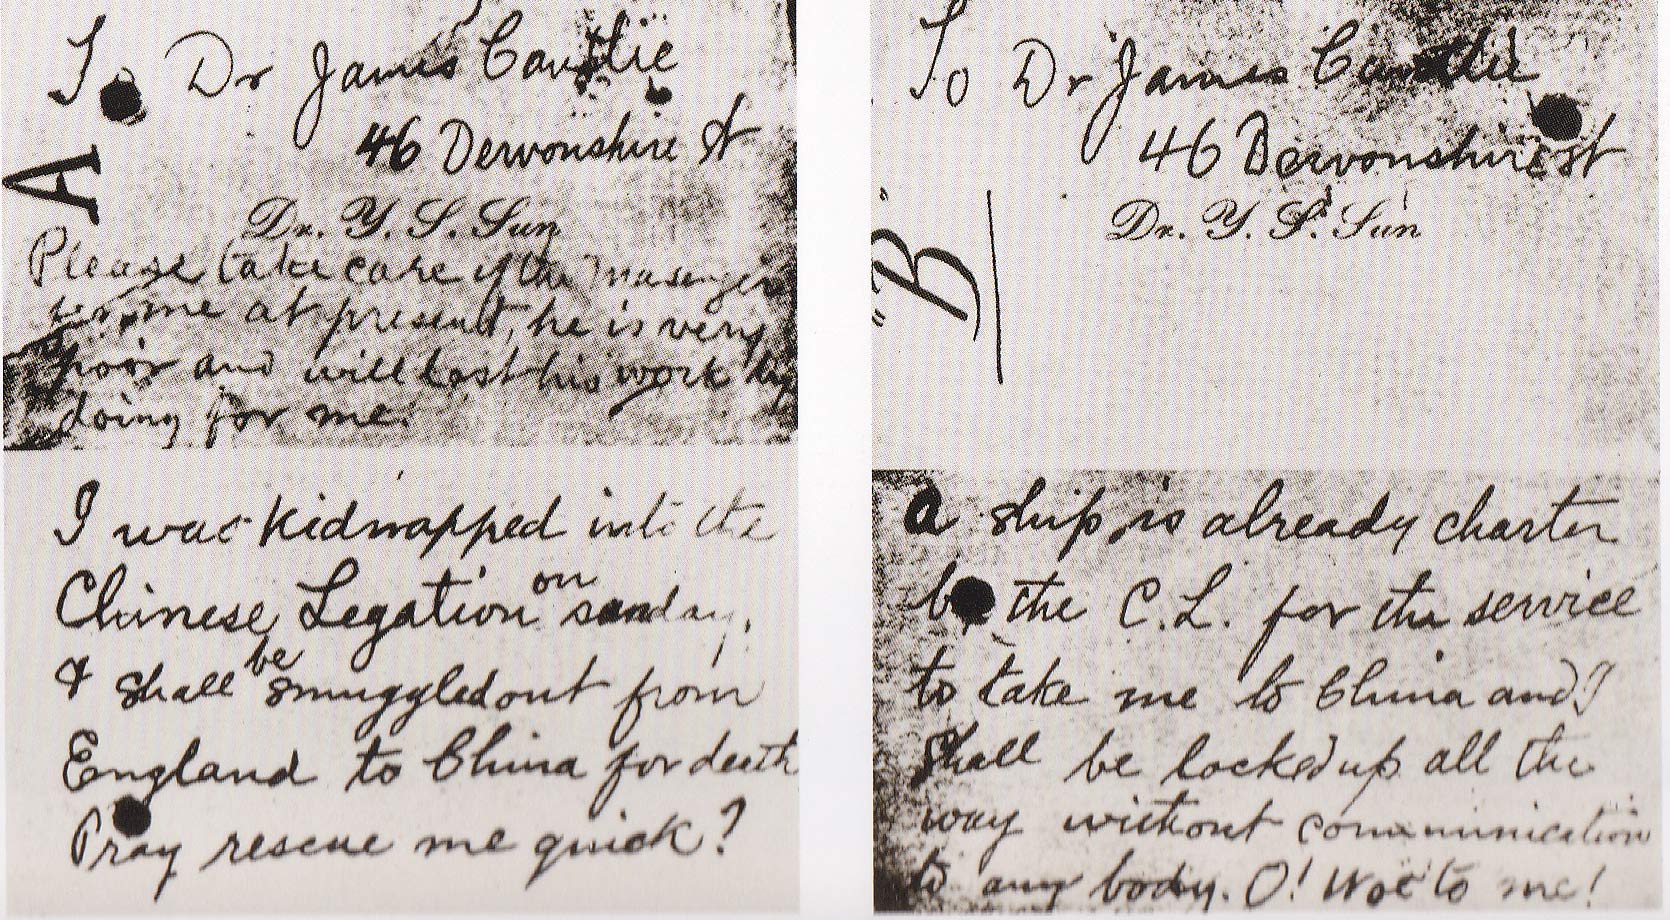 To Dr James Cantlie
46 Dervonshire St
A
Dr. Y. S. Sun
Please take care of the masenger
for me at present, he is very
poor and will lost his work by
doing for me.
I was kidnapped into the
Chinese Legation on sunday,
& shall be smuggled out from
England to China for death
Pray rescue me quick?
To Dr James Cantlie
46 Dervonshire St
"B"
Dr. Y. S. Sun
A ship is already charter
by the C. L. for the service
to take me to China and I
shall be locked up all the
way without communication
to any body. O! Woe to me!